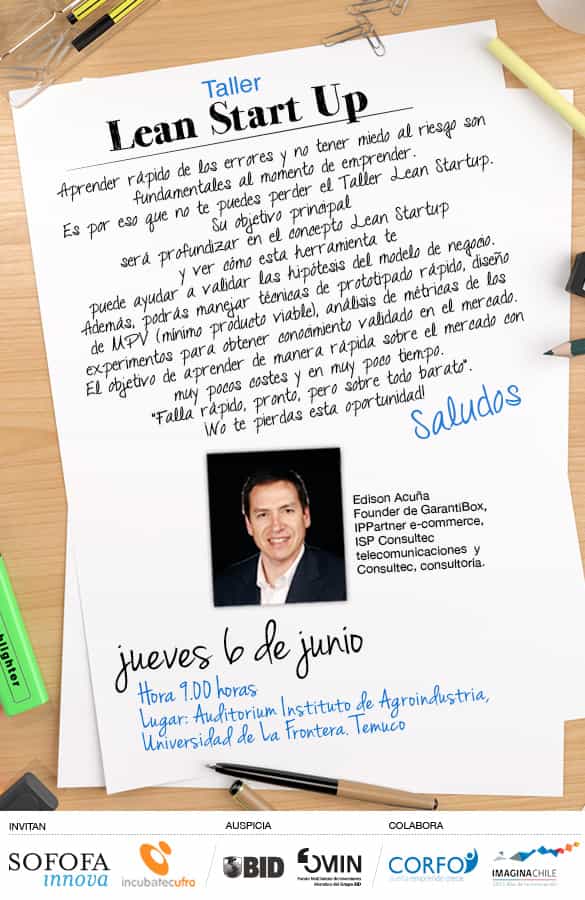 Taller
Lean Start Up
Aprender rápido de los errores y no tener miedo al riesgo son
fundamentales al momento de emprender.
Es por eso que no te puedes perder el Taller Lean Startup.
Su objetivo principal
será profundizar en el concepto Lean Startup
y ver cómo esta herramienta te
puede ayudar a validar las hipótesis del modelo de negocio.
Además, podrás manejar técnicas de prototipado rápido, diseño
de MPV (mínimo producto viable), análisis de métricas de los
experimentos para obtener conocimiento validado en el mercado.
El objetivo de aprender de manera rápida sobre el mercado con
muy pocos costes y en muy poco tiempo.
"Falla rápido, pronto, pero sobre todo barato".
¡No te pierdas esta oportunidad!
Saludos
Edison Acuña
Founder de GarantiBox,
IPPartner e-commerce,
ISP Consultec
telecomunicaciones y
Consultec, consultoría.
jueves 6 de junio
Hora 9.00 horas
Lugar: Auditorium Instituto de Agroindustria,
Universidad de La Frontera. Temuco
hlighter
INVITAN
AUSPICIA
COLABORA
SOFOFA
innova
incubatecufro
BID
FOMIN
Fondo Multilateral de Inversiones
Miembro del Grupo BID
CORFO
IMAGINACHILE